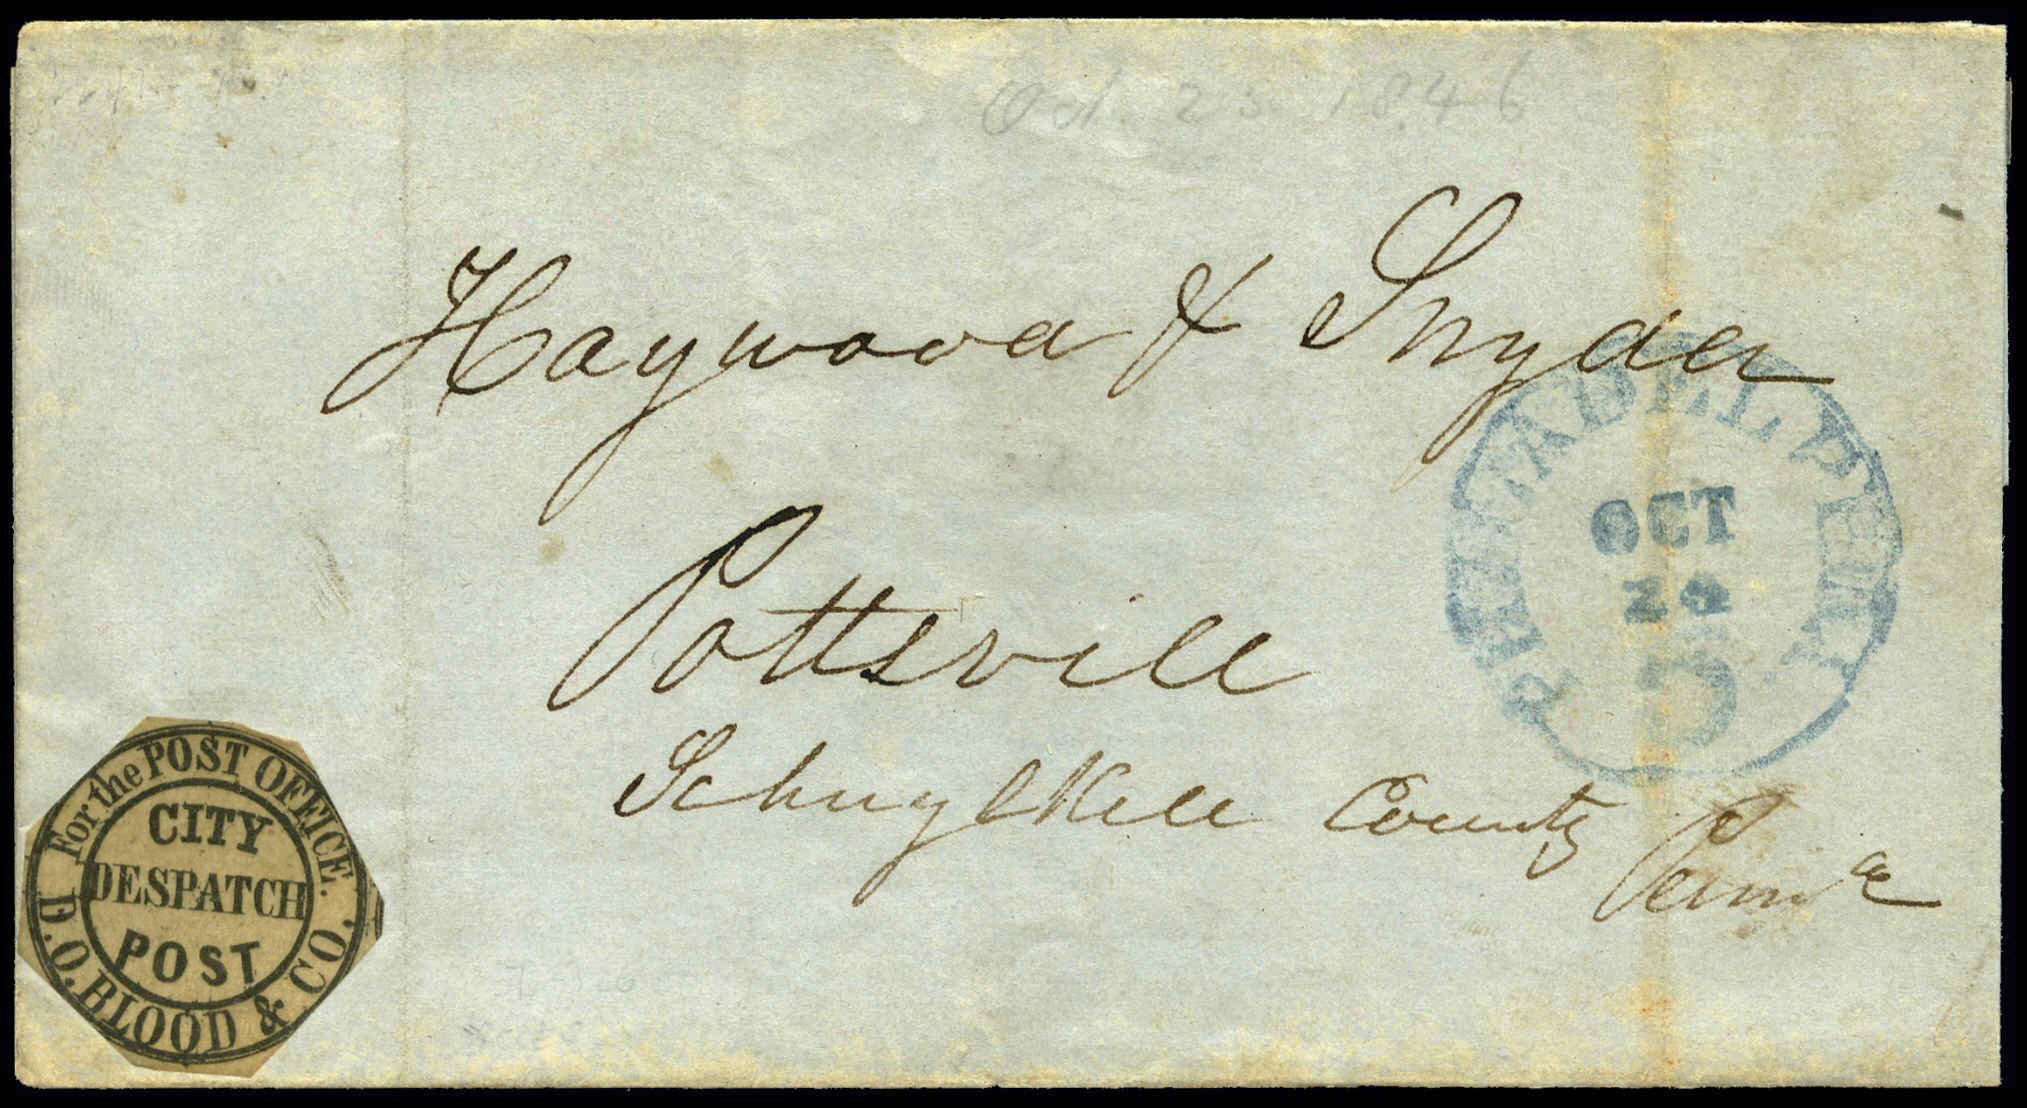 Oct. 23 1846
Haywood & Snyder
Pottsvill
Schuylkill County Penn a
PHILADELPHIA
OCT
24
5
For the POST OFFICE.
CITY
DESPATCH
POST
D.O. BLOOD & CO.